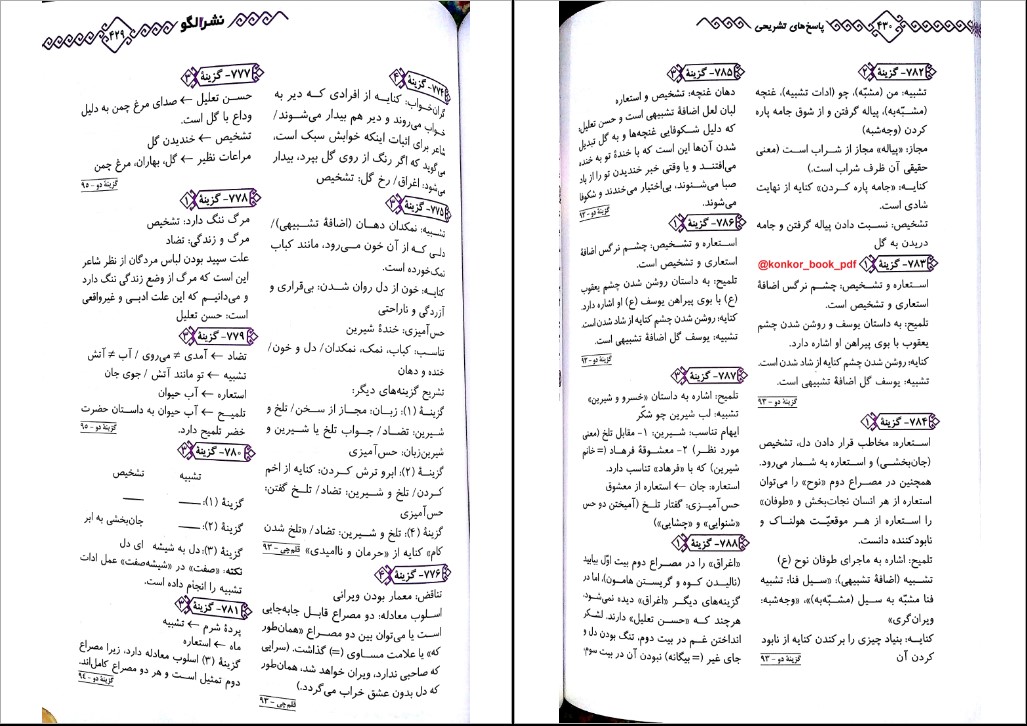 ۴۳۰
پاسخ‌های تشریحی
۷۸۲- گزینهٔ ۲
تشبیه: من (مشبّه)، چو (ادات تشبیه)، غنچه
(مشبّه‌به)، پیاله گرفتن و از شوق جامه پاره
کردن (وجه‌شبه)
مجاز: «پیاله» مجاز از شراب است (معنی
حقیقی آن ظرف شراب است.)
کنایه: «جامه پاره کردن» کنایه از نهایت
شادی است.
تشخیص: نسبت دادن پیاله گرفتن و جامه
دریدن به گل
۷۸۳- گزینهٔ ۱
@konkor_book_pdf
استعاره و تشخیص: چشم نرگس اضافهٔ
استعاری و تشخیص است.
تلمیح: به داستان یوسف و روشن شدن چشم
یعقوب با بوی پیراهن او اشاره دارد.
کنایه: روشن شدن چشم کنایه از شاد شدن است.
تشبیه: یوسف گل اضافهٔ تشبیهی است.
گزینهٔ دو - ۹۳
۷۸۴- گزینهٔ ۱
استعاره: مخاطب قرار دادن دل، تشخیص
(جان‌بخشی) و استعاره به شمار می‌رود.
همچنین در مصراع دوم «نوح» را می‌توان
استعاره از هر انسان نجات‌بخش و «طوفان»
را استعاره از هر موقعیّت هولناک و
نابودکننده دانست.
تلمیح: اشاره به ماجرای طوفان نوح (ع)
تشبیه (اضافهٔ تشبیهی): «سیل فنا: تشبیه
فنا مشبّه به سیل (مشبّه‌به)»، «وجه‌شبه:
ویران‌گری»
کنایه: بنیاد چیزی را برکندن کنایه از نابود
کردن آن
گزینهٔ دو - ۹۳
۷۸۵- گزینهٔ ۳
دهان غنچه: تشخیص و استعاره
لبان لعل اضافهٔ تشبیهی است و حسن تعلیل
که دلیل شکوفایی غنچه‌ها و به گل تبدیل
شدن آن‌ها این است که با خندهٔ تو به خنده
می‌افتند و یا وقتی خبر خندیدن تو را از باد
صبا می‌شنوند، بی‌اختیار می‌خندند و شکوفا
می‌شوند.
گزینهٔ دو - ۹۳
۷۸۶- گزینهٔ ۱
استعاره و تشخیص: چشم نرگس اضافهٔ
استعاری و تشخیص است.
تلمیح: به داستان روشن شدن چشم یعقوب
(ع) با بوی پیراهن یوسف (ع) او اشاره دارد.
کنایه: روشن شدن چشم کنایه از شاد شدن است.
تشبیه: یوسف گل اضافهٔ تشبیهی است.
گزینهٔ دو - ۹۳
۷۸۷- گزینهٔ ۳
تلمیح: اشاره به داستان «خسرو و شیرین»
تشبیه: لب شیرین چو شکّر
ایهام تناسب: شیرین: ۱- مقابل تلخ (معنی
مورد نظر) ۲- معشوقهٔ فرهاد (= خانم
شیرین) که با «فرهاد» تناسب دارد.
استعاره: جان ← استعاره از معشوق
حس‌آمیزی: گفتار تلخ (آمیختن دو حس
«شنوایی» و «چشایی»)
۷۸۸- گزینهٔ ۱
«اغراق» را در مصراع دوم بیت اوّل بیابید
(نالیدن کوه و گریستن هامون)، اما در
گزینه‌های دیگر «اغراق» دیده نمی‌شود،
هرچند که «حسن تعلیل» دارند. لشکر
انداختن غم در بیت دوم، تنگ بودن دل و
جای غیر (= بیگانه) نبودن آن در بیت سوم،
نشر الگو
۴۲۹
۷۷۴- گزینهٔ ۴
گران‌خواب: کنایه از افرادی که دیر به
خواب می‌روند و دیر هم بیدار می‌شوند/
شاعر برای اثبات اینکه خوابش سبک است،
می‌گوید که اگر رنگ از روی گل بپرد، بیدار
می‌شود: اغراق/ رخ گل: تشخیص
۷۷۵- گزینهٔ ۳
تشبیه: نمکدان دهان (اضافهٔ تشبیهی)/
دلی که از آن خون می‌رود، مانند کباب
نمک‌خورده است.
کنایه: خون از دل روان شدن: بی‌قراری و
آزردگی و ناراحتی
حس‌آمیزی: خندهٔ شیرین
تناسب: کباب، نمک، نمکدان/ دل و خون/
خنده و دهان
تشریح گزینه‌های دیگر:
گزینهٔ (۱): زبان: مجاز از سخن/ تلخ و
شیرین: تضاد/ جواب تلخ یا شیرین و
شیرین‌زبان: حس‌آمیزی
گزینهٔ (۲): ابرو ترش کردن: کنایه از اخم
کردن/ تلخ و شیرین: تضاد/ تلخ گفتن:
حس‌آمیزی
گزینهٔ (۴): تلخ و شیرین: تضاد/ «تلخ شدن
کام» کنایه از «حرمان و ناامیدی» قلم‌چی - ۹۳
۷۷۶- گزینهٔ ۴
تناقض: معمار بودن ویرانی
اسلوب معادله: دو مصراع قابل جابه‌جایی
است یا می‌توان بین دو مصراع «همان‌طور
که» یا علامت مساوی (=) گذاشت. (سرایی
که صاحبی ندارد، ویران خواهد شد، همان‌طور
که دل بدون عشق خراب می‌گردد.)
قلم‌چی - ۹۳
۷۷۷- گزینهٔ ۳
حسن تعلیل ← صدای مرغ چمن به دلیل
وداع با گل است.
تشخیص ← خندیدن گل
مراعات نظیر ← گل، بهاران، مرغ چمن
گزینهٔ دو - ۹۵
۷۷۸- گزینهٔ ۱
مرگ ننگ دارد: تشخیص
مرگ و زندگی: تضاد
علت سپید بودن لباس مردگان از نظر شاعر
این است که مرگ از وضع زندگی ننگ دارد
و می‌دانیم که این علت ادبی و غیرواقعی
است: حسن تعلیل
۷۷۹- گزینهٔ ۳
تضاد ← آمدی ≠ می‌روی / آب ≠ آتش
تشبیه ← تو مانند آتش / جوی جان
استعاره ← آب حیوان
تلمیح ← آب حیوان به داستان حضرت
خضر تلمیح دارد.
گزینهٔ دو - ۹۵
۷۸۰- گزینهٔ ۳
تشبیه تشخیص
گزینهٔ (۱): ـــــ ـــــ
گزینهٔ (۲): ـــــ جان‌بخشی به ابر
گزینهٔ (۳): دل به شیشه ای دل
نکته: «صفت» در «شیشه‌صفت» عمل ادات
تشبیه را انجام داده است.
۷۸۱- گزینهٔ ۳
پردهٔ شرم ← تشبیه
ماه ← استعاره
گزینهٔ (۳) اسلوب معادله دارد، زیرا مصراع
دوم تمثیل است و هر دو مصراع کامل‌اند.
گزینهٔ دو - ۹۴